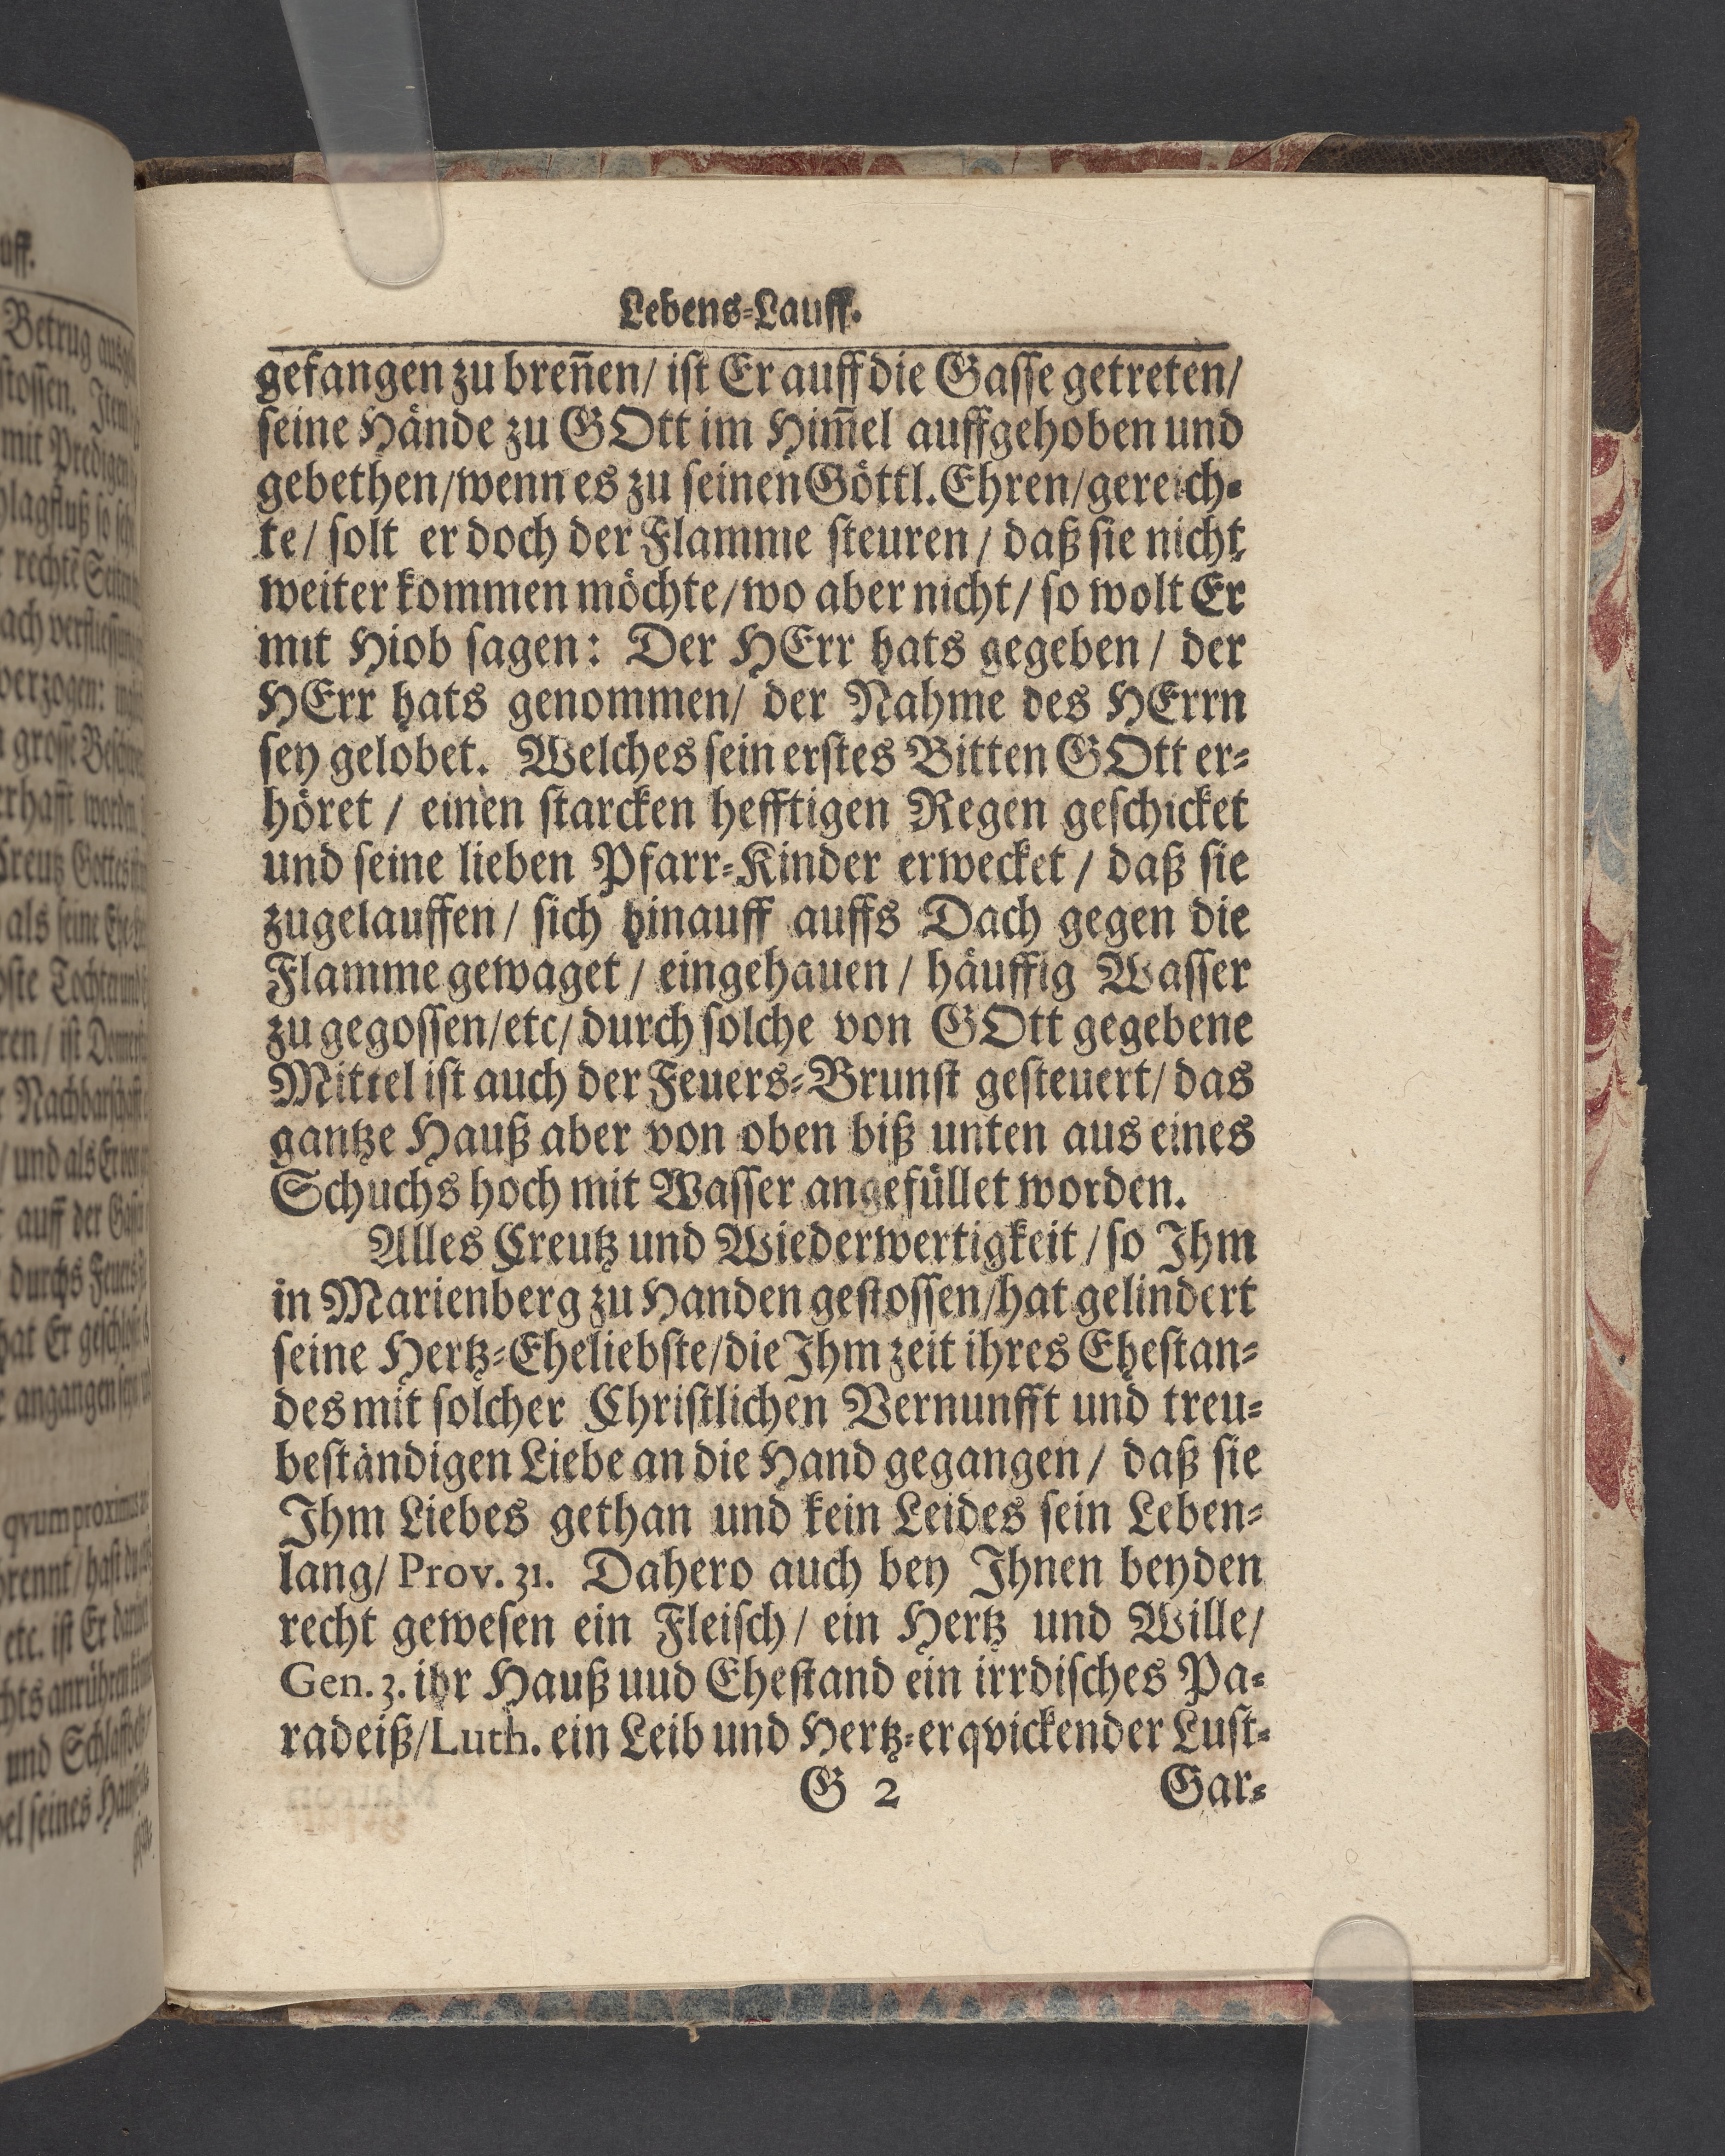 Lebens-Lauff.
gefangen zu breñen/ ist Er auff die Gasse getreten/
seine Hände zu GOtt im Him̃el auffgehoben und
gebethen/wenn es zu seinen Göttl. Ehren/gereich-
te/ solt er doch der Flamme steuren/ daß sie nicht
weiter kommen möchte/wo aber nicht/ so wolt Er
mit Hiob sagen: Der HErr hats gegeben/ der
HErr hats genommen/ der Nahme des HErrn
sey gelobet. Welches sein erstes Bitten GOtt er-
höret/ einen starcken hefftigen Regen geschicket
und seine lieben Pfarr-Kinder erwecket/ daß sie
zugelauffen/ sich hinauff auffs Dach gegen die
Flamme gewaget/ eingehauen/ häuffig Wasser
zu gegossen/etc/ durch solche von GOtt gegebene
Mittel ist auch der Feuers-Brunst gesteuert/ das
gantze Hauß aber von oben biß unten aus eines
Schuchs hoch mit Wasser angefüllet worden.
Alles Creutz und Wiederwertigkeit/ so Ihm
in Marienberg zu Handen gestossen/hat gelindert
seine Hertz-Eheliebste/die Ihm zeit ihres Ehestan-
des mit solcher Christlichen Vernunfft und treu-
beständigen Liebe an die Hand gegangen/ daß sie
Ihm Liebes gethan und kein Leides sein Leben-
lang/ Prov. 31. Dahero auch bey Ihnen beyden
recht gewesen ein Fleisch/ ein Hertz und Wille/
Gen. 3. ihr Hauß uud Ehestand ein irrdisches Pa-
radeiß/Luth. ein Leib und Hertz-erqvickender Lust-
G 2 Gar-